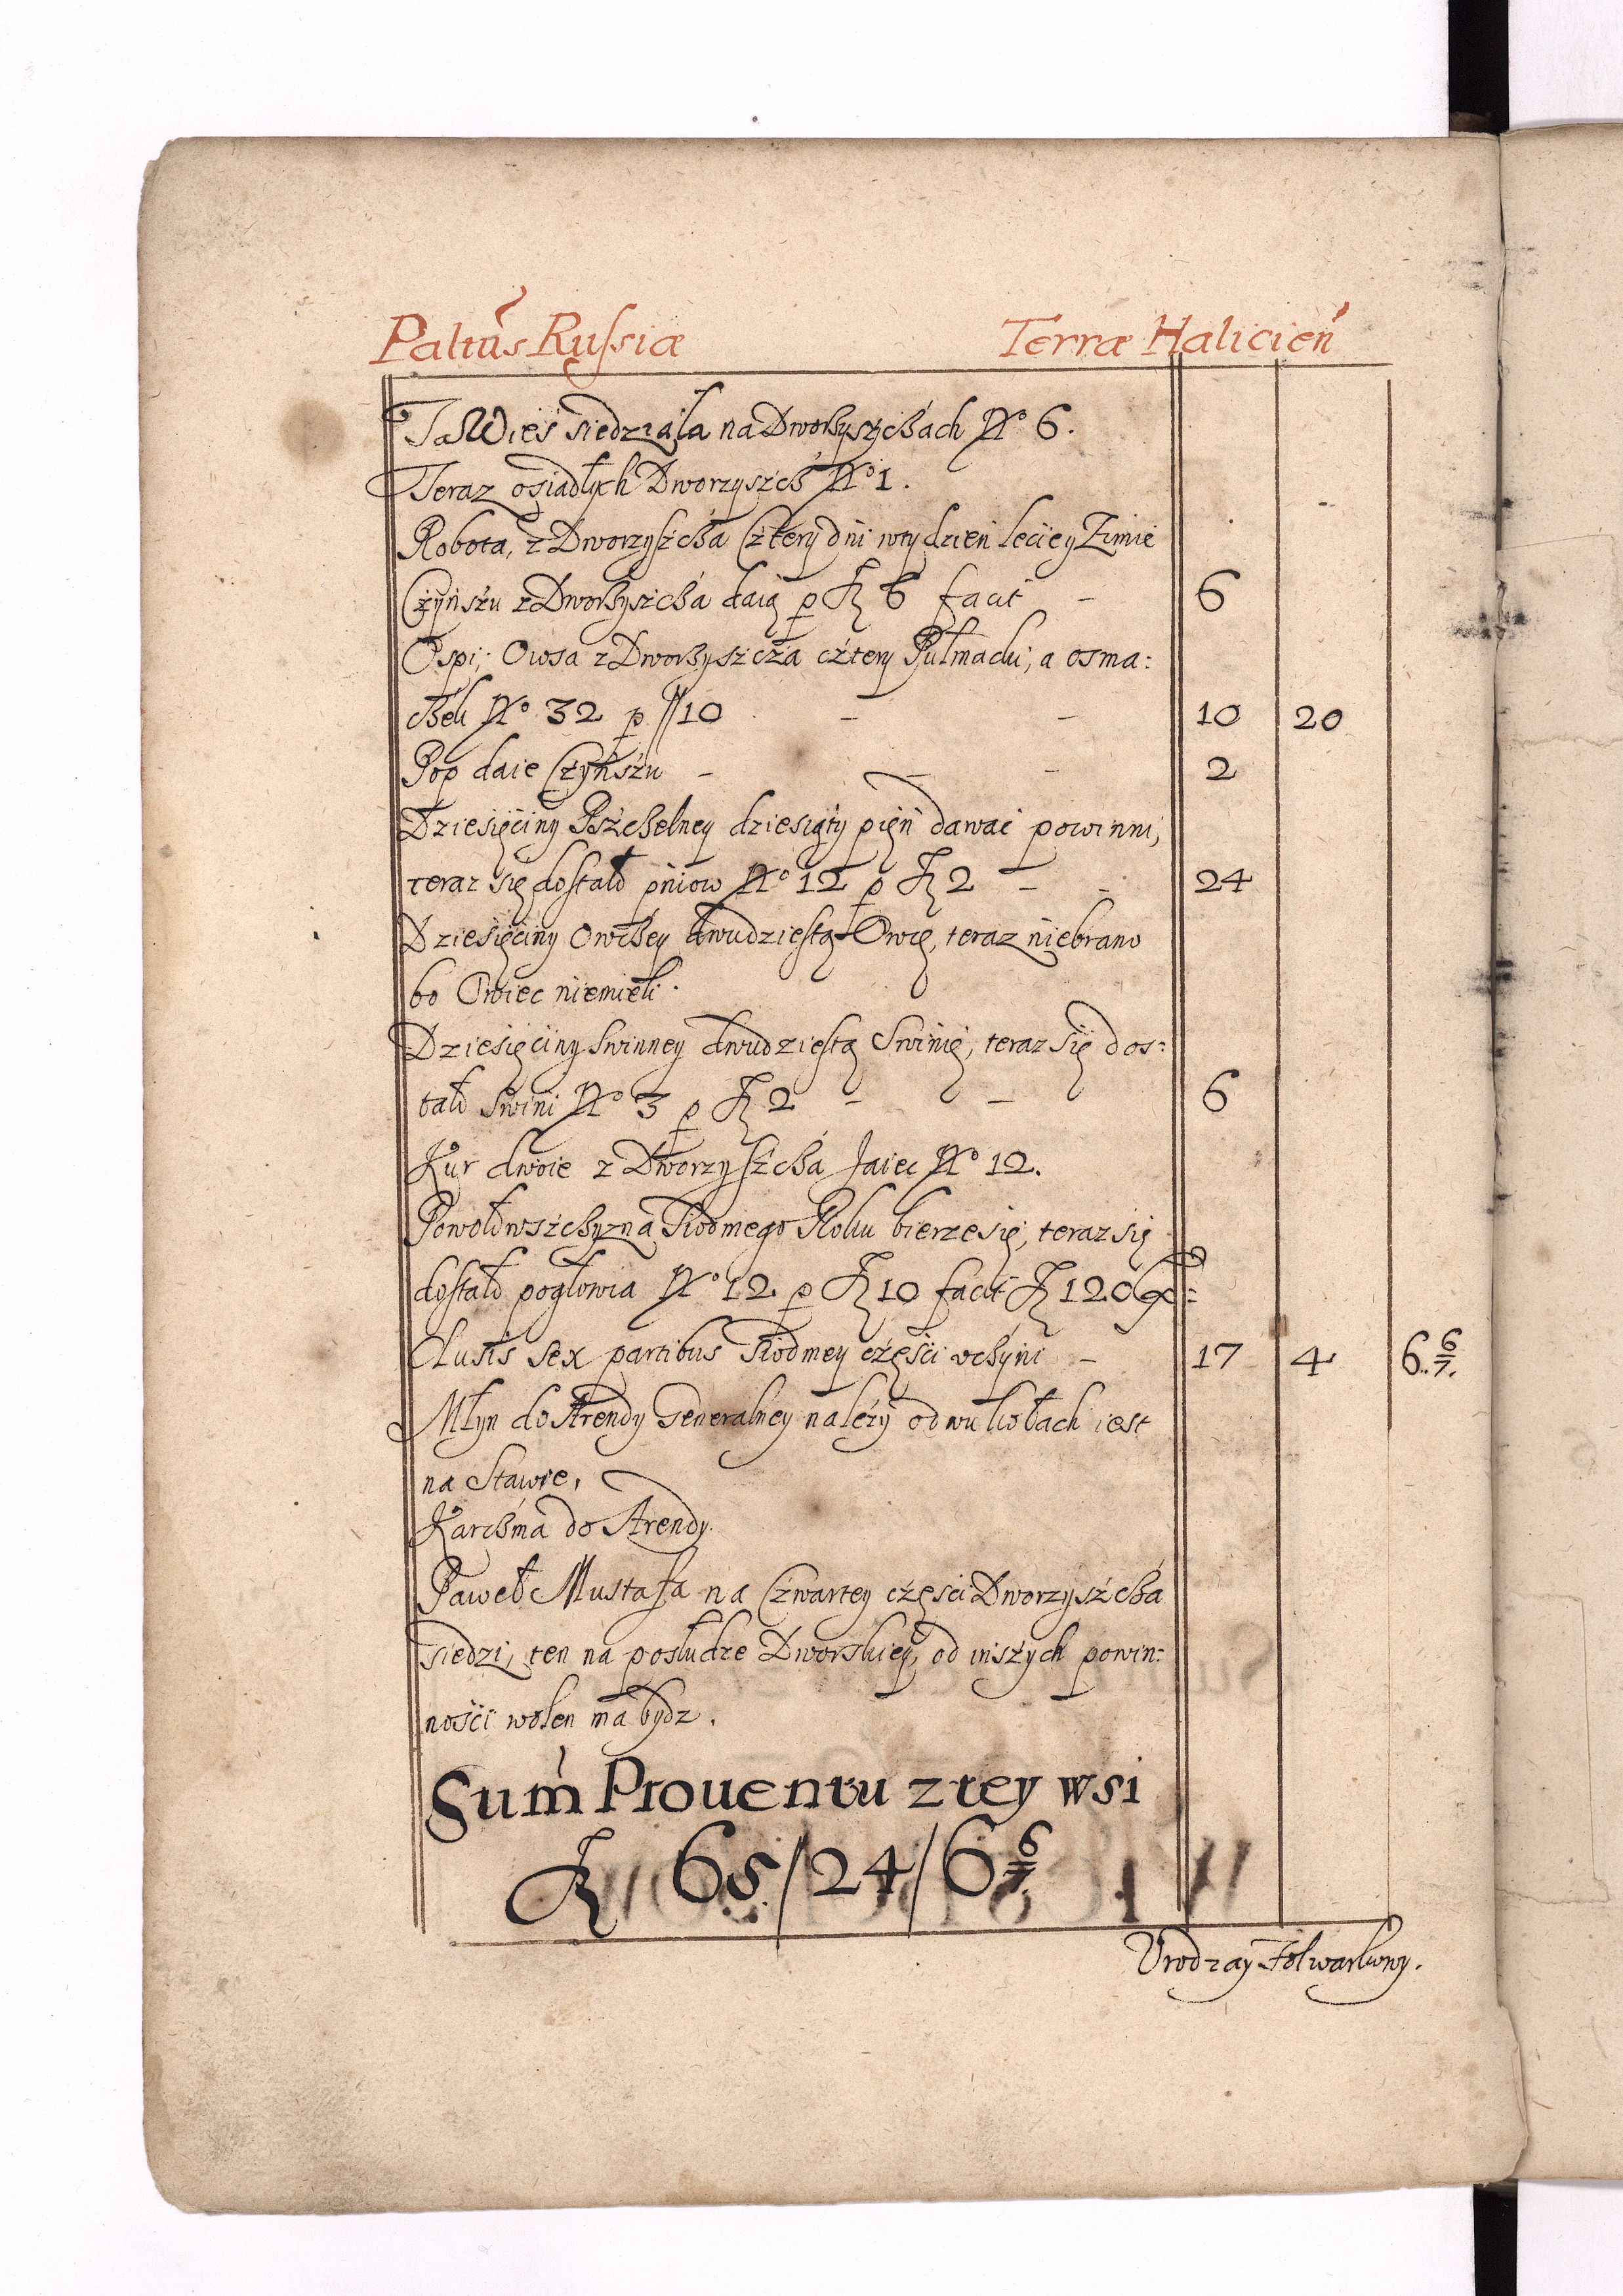 Paltũs Russiæ Terræ Halicień
Ta Wieś siedziała na Dworzyszczach No 6.
Teraz osiadłych Dworzyszcz No 1.
Robota, z Dworzyszcza Cztery dni w tydzień lecie y Zimie
Czynszu z Dworzyszcza daią p fl 6 facit - 6
Ospi, Owsa z Dworzyszcza cztery Pułmacki, a osma:
czek No 32 p // 10 - - 10 20
Pop daie Czynszu - - - 2
Dziesięciny Pszczelney dziesiąty pień dawać powinni,
teraz się dostało pniow No 12 p fl 2 - - 24
Dziesięciny Owczey dwudziestą Owcę, teraz niebrano
bo Owiec niemieli.
Dziesięciny Swinney dwudziestą Swinię, teraz się dos:
tało Swini No 3 p fl 2 - - 6
Kur dwoie z Dworzyszcza Jaiec No 12.
Powołowszczyzna Siodmego Roku bierze się, teraz się
dostało pogłowia No 12 p fl 10 facit fl 120 Ex:
clusis sex partibus Siodmey części uczyni - 17 4 6 6/7.
Młyn do Arendy Generalney należy o dwu kołach iest
na Stawie,
Karczma do Arendy.
Paweł Mustafa na Czwartey części Dworzyszcza
siedzi, ten na posłudze Dworskiey, od inszych powin:
ności wolen ma bydz.
Sum̃ Prouentu z tey wsi
fl 65/24/6 6/7
Urodzay Folwarkowy.